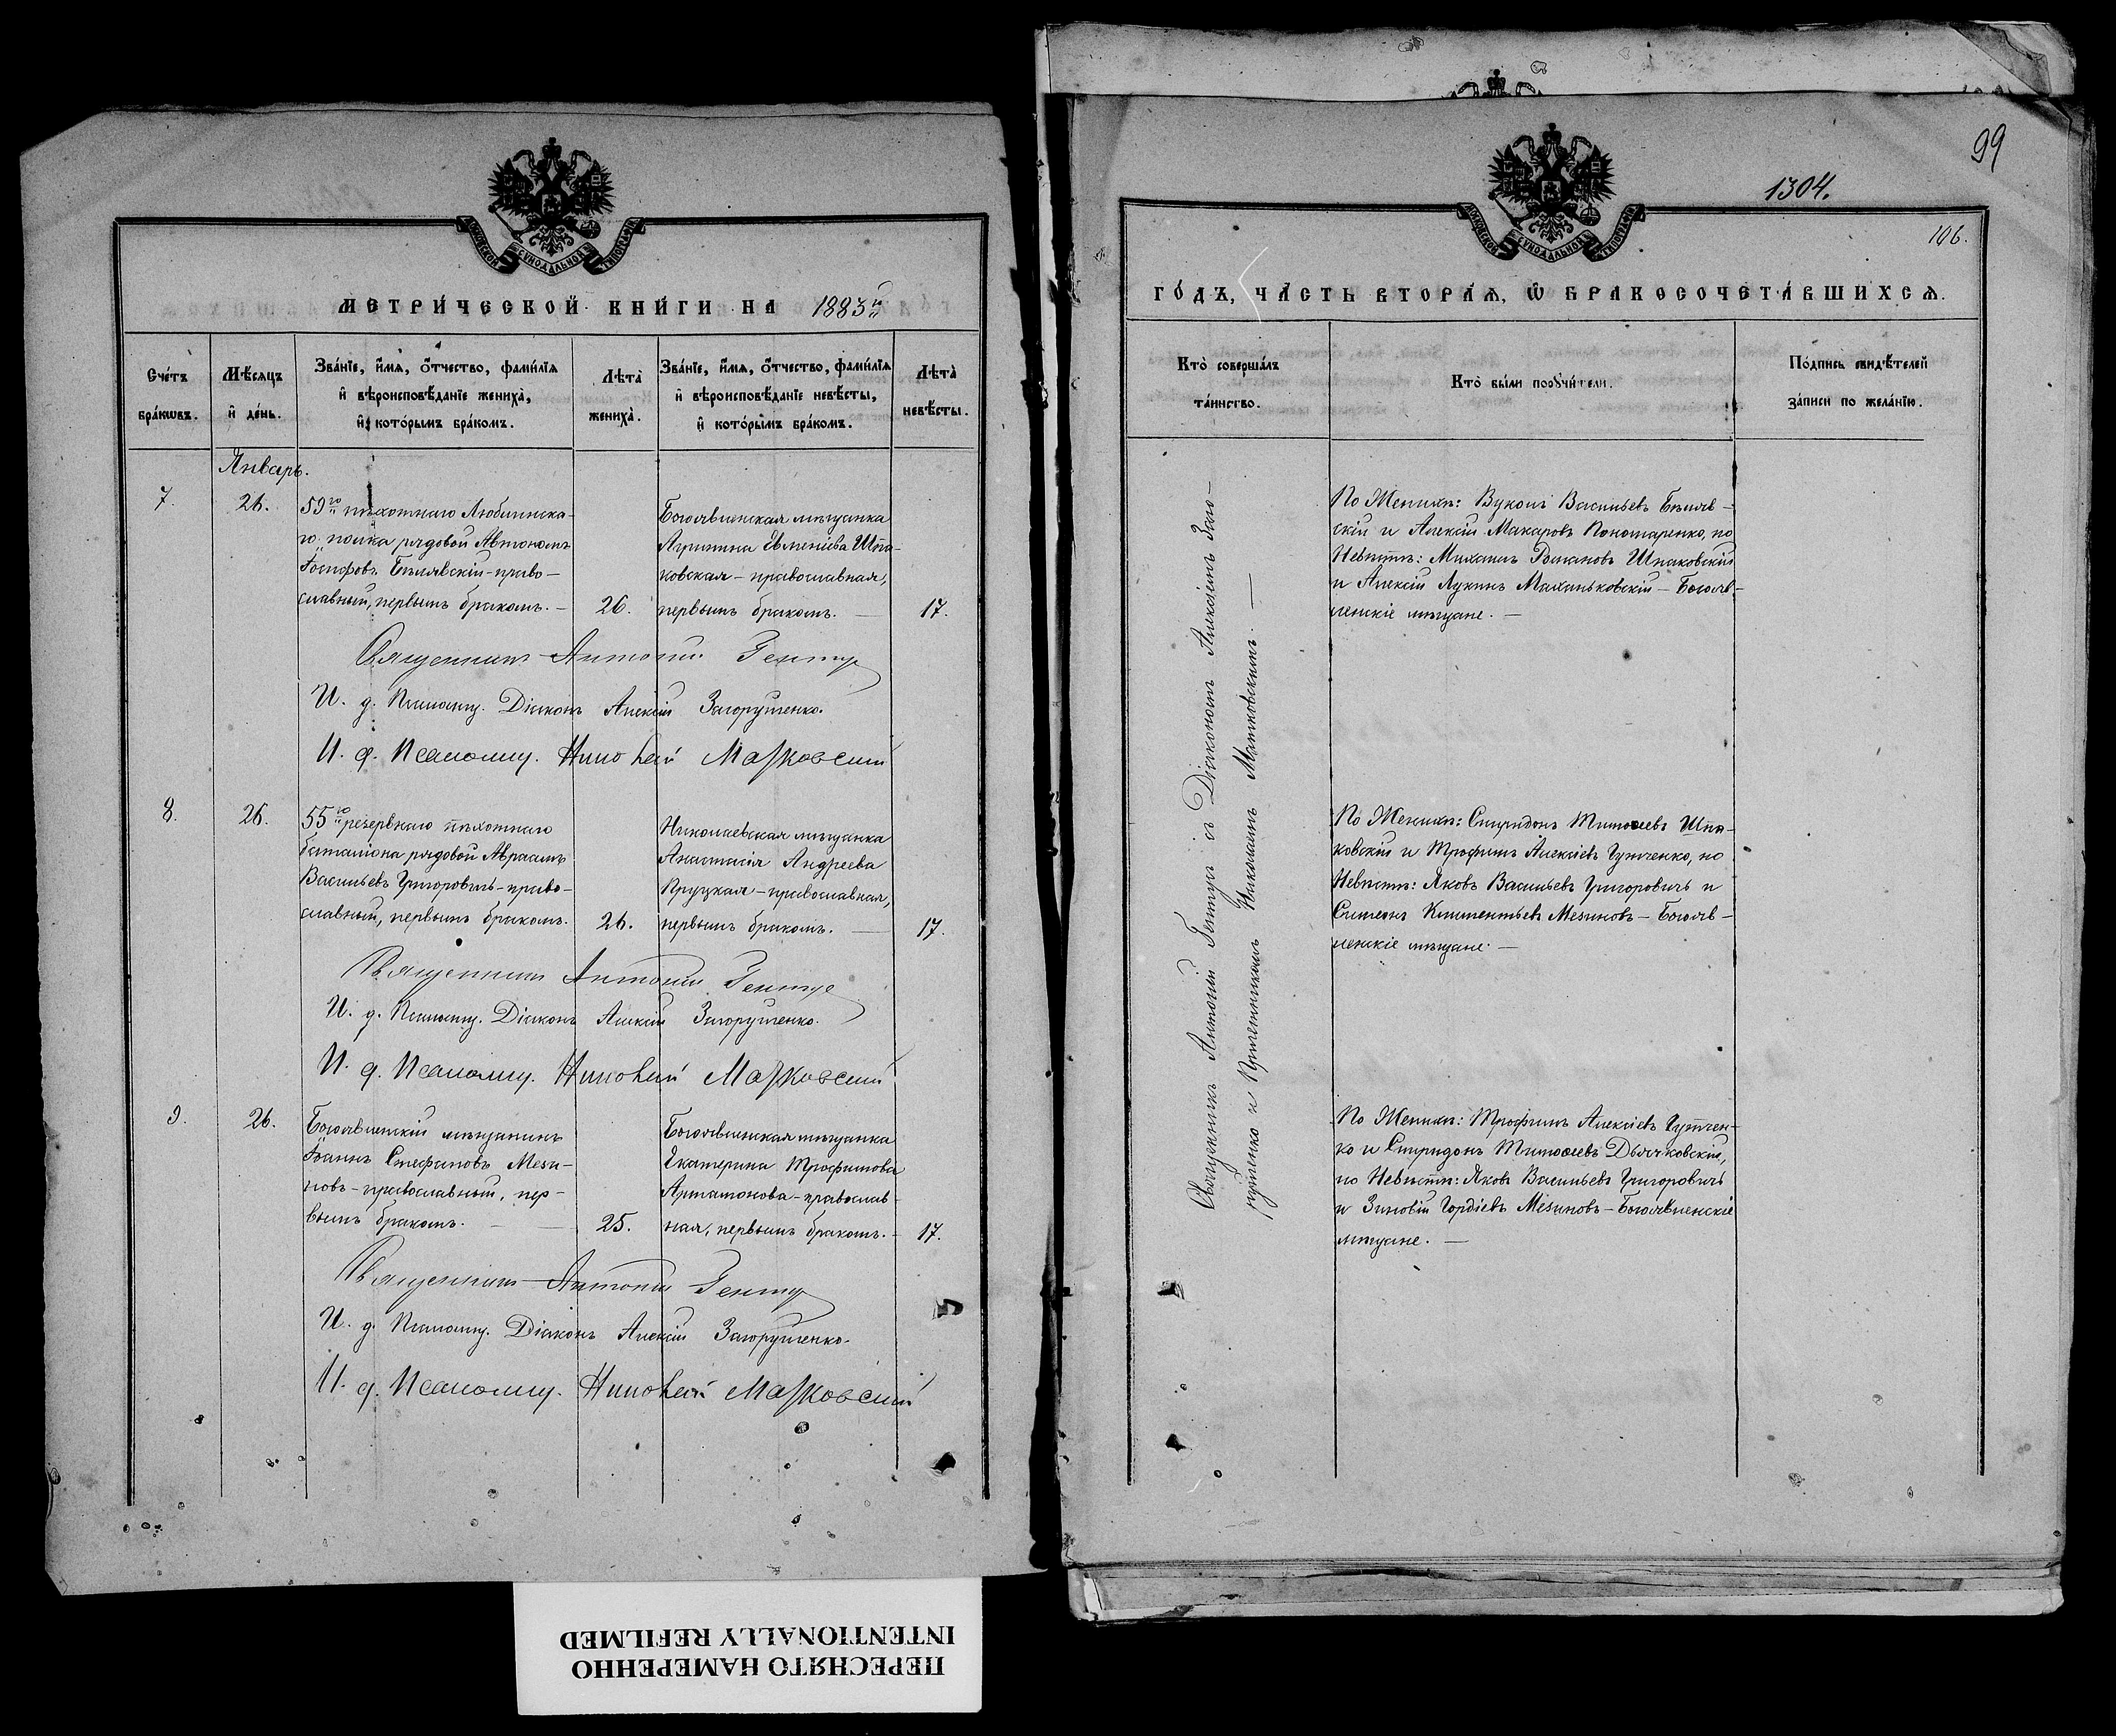 МОСКОВСКОЙ СѴНОДАЛЬНОЙ ТИПОГРАФІИ
МЕТРИ́ЧЕСКОЙ КНИ́ГИ НА 1883й
Сче́тъ бра́кωвъ.
Мѣ́сяцъ и҆ де́нь.
Зва́нїе, и҆́мѧ, ѻ҆́тчество, фами́лїѧ
и҆ вѣроисповѣ́данїе жениха̀,
и҆ кото́рымъ бра́комъ.
Лѣ́та̀ жениха̀.
Зва́нїе, и҆́мѧ, ѻ҆́тчество, фами́лїѧ
и҆ вѣроисповѣ́данїе невѣ́сты,
и҆ кото́рымъ бра́комъ.
Лѣ́та̀ невѣ́сты.
Январь.
7.
26.
59го пѣхотнаго Люблинска-
го полка рядовой Автономъ
Іосифовъ Бѣлявскій - право-
славный, первымъ бракомъ. -
26.
Богоявленская мѣщанка
Агрипина Евменіева Шпа-
ковская - православная,
первымъ бракомъ. —
17.
Священникъ Антоній Гентуш
И. д. Псаломщ. Діаконъ Алексій Загорушенко.
И. д. Псаломщ. Николай Матковскій
8.
26.
55го резервнаго пѣхотнаго
баталіона рядовой Авраамъ
Васильевъ Григоровичъ - право-
славный, первымъ бракомъ.
26.
Николаевская мѣщанка
Анастасія Андреева
Пруцкая - православная,
первымъ бракомъ. —
17.
Священникъ Антоній
И. д. Псаломщ. Діаконъ Алексій Загорушенко.
И. д. Псаломщ. Николай Матковскій
9.
26.
Богоявленскій мѣщанинъ
Іоаннъ Стефановъ Мези-
новъ - православный, пер-
вымъ бракомъ. —
25.
Богоявленская мѣщанка
Екатерина Трофимова
Артамонова - православ-
ная, первымъ бракомъ. -
17.
Священникъ Антоній
И. д. Псаломщ. Діаконъ Алексій Загорушенко.
И. д. Псаломщ. Николай Матковскій
ПЕРЕСНЯТО НАМЕРЕННО
INTENTIONALLY REFILMED
99
1304.
106.
МОСКОВСКОЙ СѴНОДАЛЬНОЙ ТИПОГРАФІИ
ГО́ДЪ, ЧА́СТЬ ВТОРА́Ѧ, Ѽ БРАКОСОЧЕТА́ВШИХСѦ.
Кто̀ соверша́лъ
та́инство.
Кто̀ бы́ли порꙋчи́тели.
По́дпись свидѣ́телей
за́писи по жела́нїю.
Священникъ Антоній съ Діакономъ Алексіемъ Заго-
рушенко и Причетникомъ Николаемъ Матковскимъ. —
По Женихѣ: Вуколъ Васильевъ Бѣляв-
скій и Алексій Макаровъ Пономаренко, по
Невѣстѣ: Михаилъ Романовъ Шпаковскій
и Алексій Лукинъ Маханьковскій - Богояв-
ленскіе мѣщане. —
По Женихѣ: Спиридонъ Тимоѳеевъ Шпа-
ковскій и Трофимъ Алексіевъ Гутченко, по
Невѣстѣ: Яковъ Васильевъ Григоровичъ и
Симеонъ Климентьевъ Мезиновъ - Богояв-
ленскіе мѣщане. —
По Женихѣ: Трофимъ Алексіевъ Гутчен-
ко и Спиридонъ Тимоѳеевъ Дьячковскій,
по Невѣстѣ: Яковъ Васильевъ Григоровичъ
и Зиновій Гордіевъ Мезиновъ - Богоявленскіе
мѣщане. —